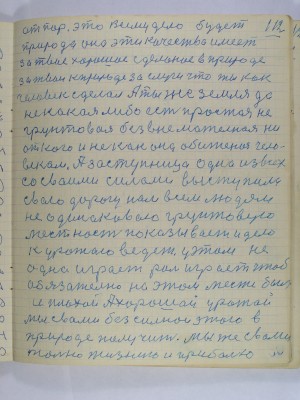 от пор. это всему дело будет 112
природа она эти качества имеет
за твие хорошие сделаные в природе
за твои к природе заслуги что ти как
человек сделал А ты же земля да
не какая либо есть простая не
грунтовая без внемателная ни
от кого и не как она обижена чело-
веком. А заступница одна из всех
со своими силами выступила
свою дорогу нам всем людям
не одинаковою грунтовую
местност показывает и дело
к урожаю ведет, у этом не
одна играет рол играет чтоб
обязателно на этом месте был
и плохой А хороший урожай
мы свами без силной этого в
природе получит. Мы же своим
толко жизнено и приболю